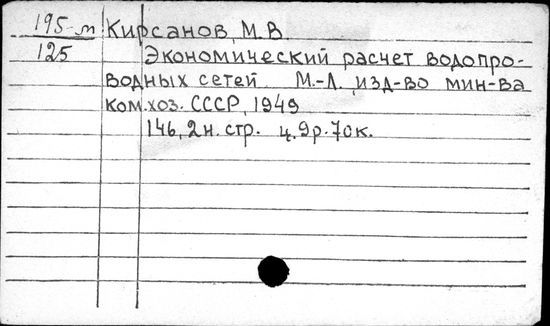 195-м Кирсанов, М.В.
125 Экономический расчет водопро-
водных сетей М.-Л. изд-во мин-ва
ком.хоз. СССР, 1949
146, 2 н. стр. ц. 9 р. 70 к.